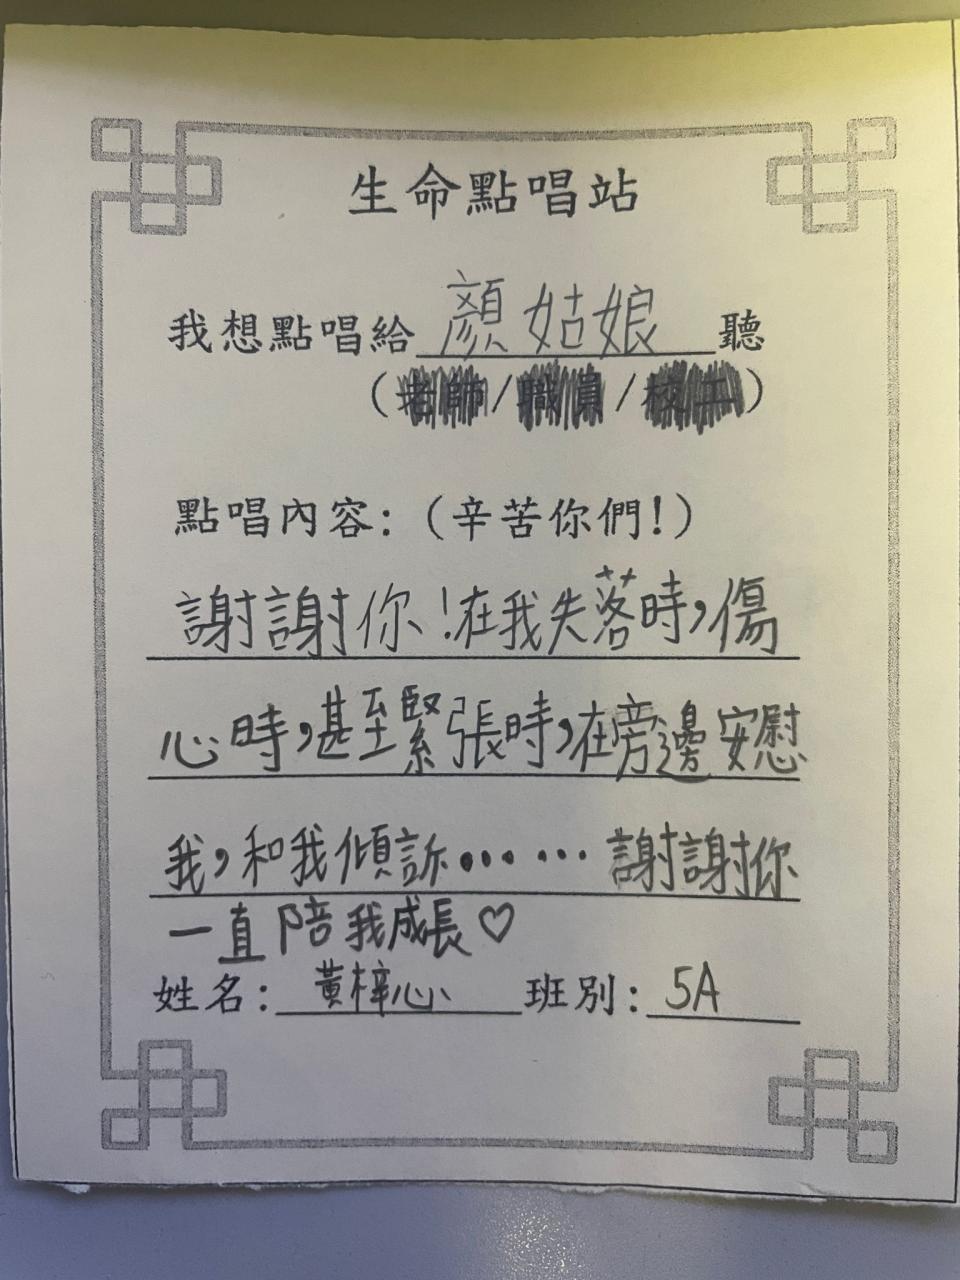 生命點唱站
我想點唱給顏姑娘聽
(老師/職員/校工)
點唱內容:(辛苦你們!)
謝謝你!在我失落時,傷
心時,甚至緊張時,在旁邊安慰
我,和我傾訴⋯⋯謝謝你
一直陪我成長♡
姓名:黃梓心 班別:5A